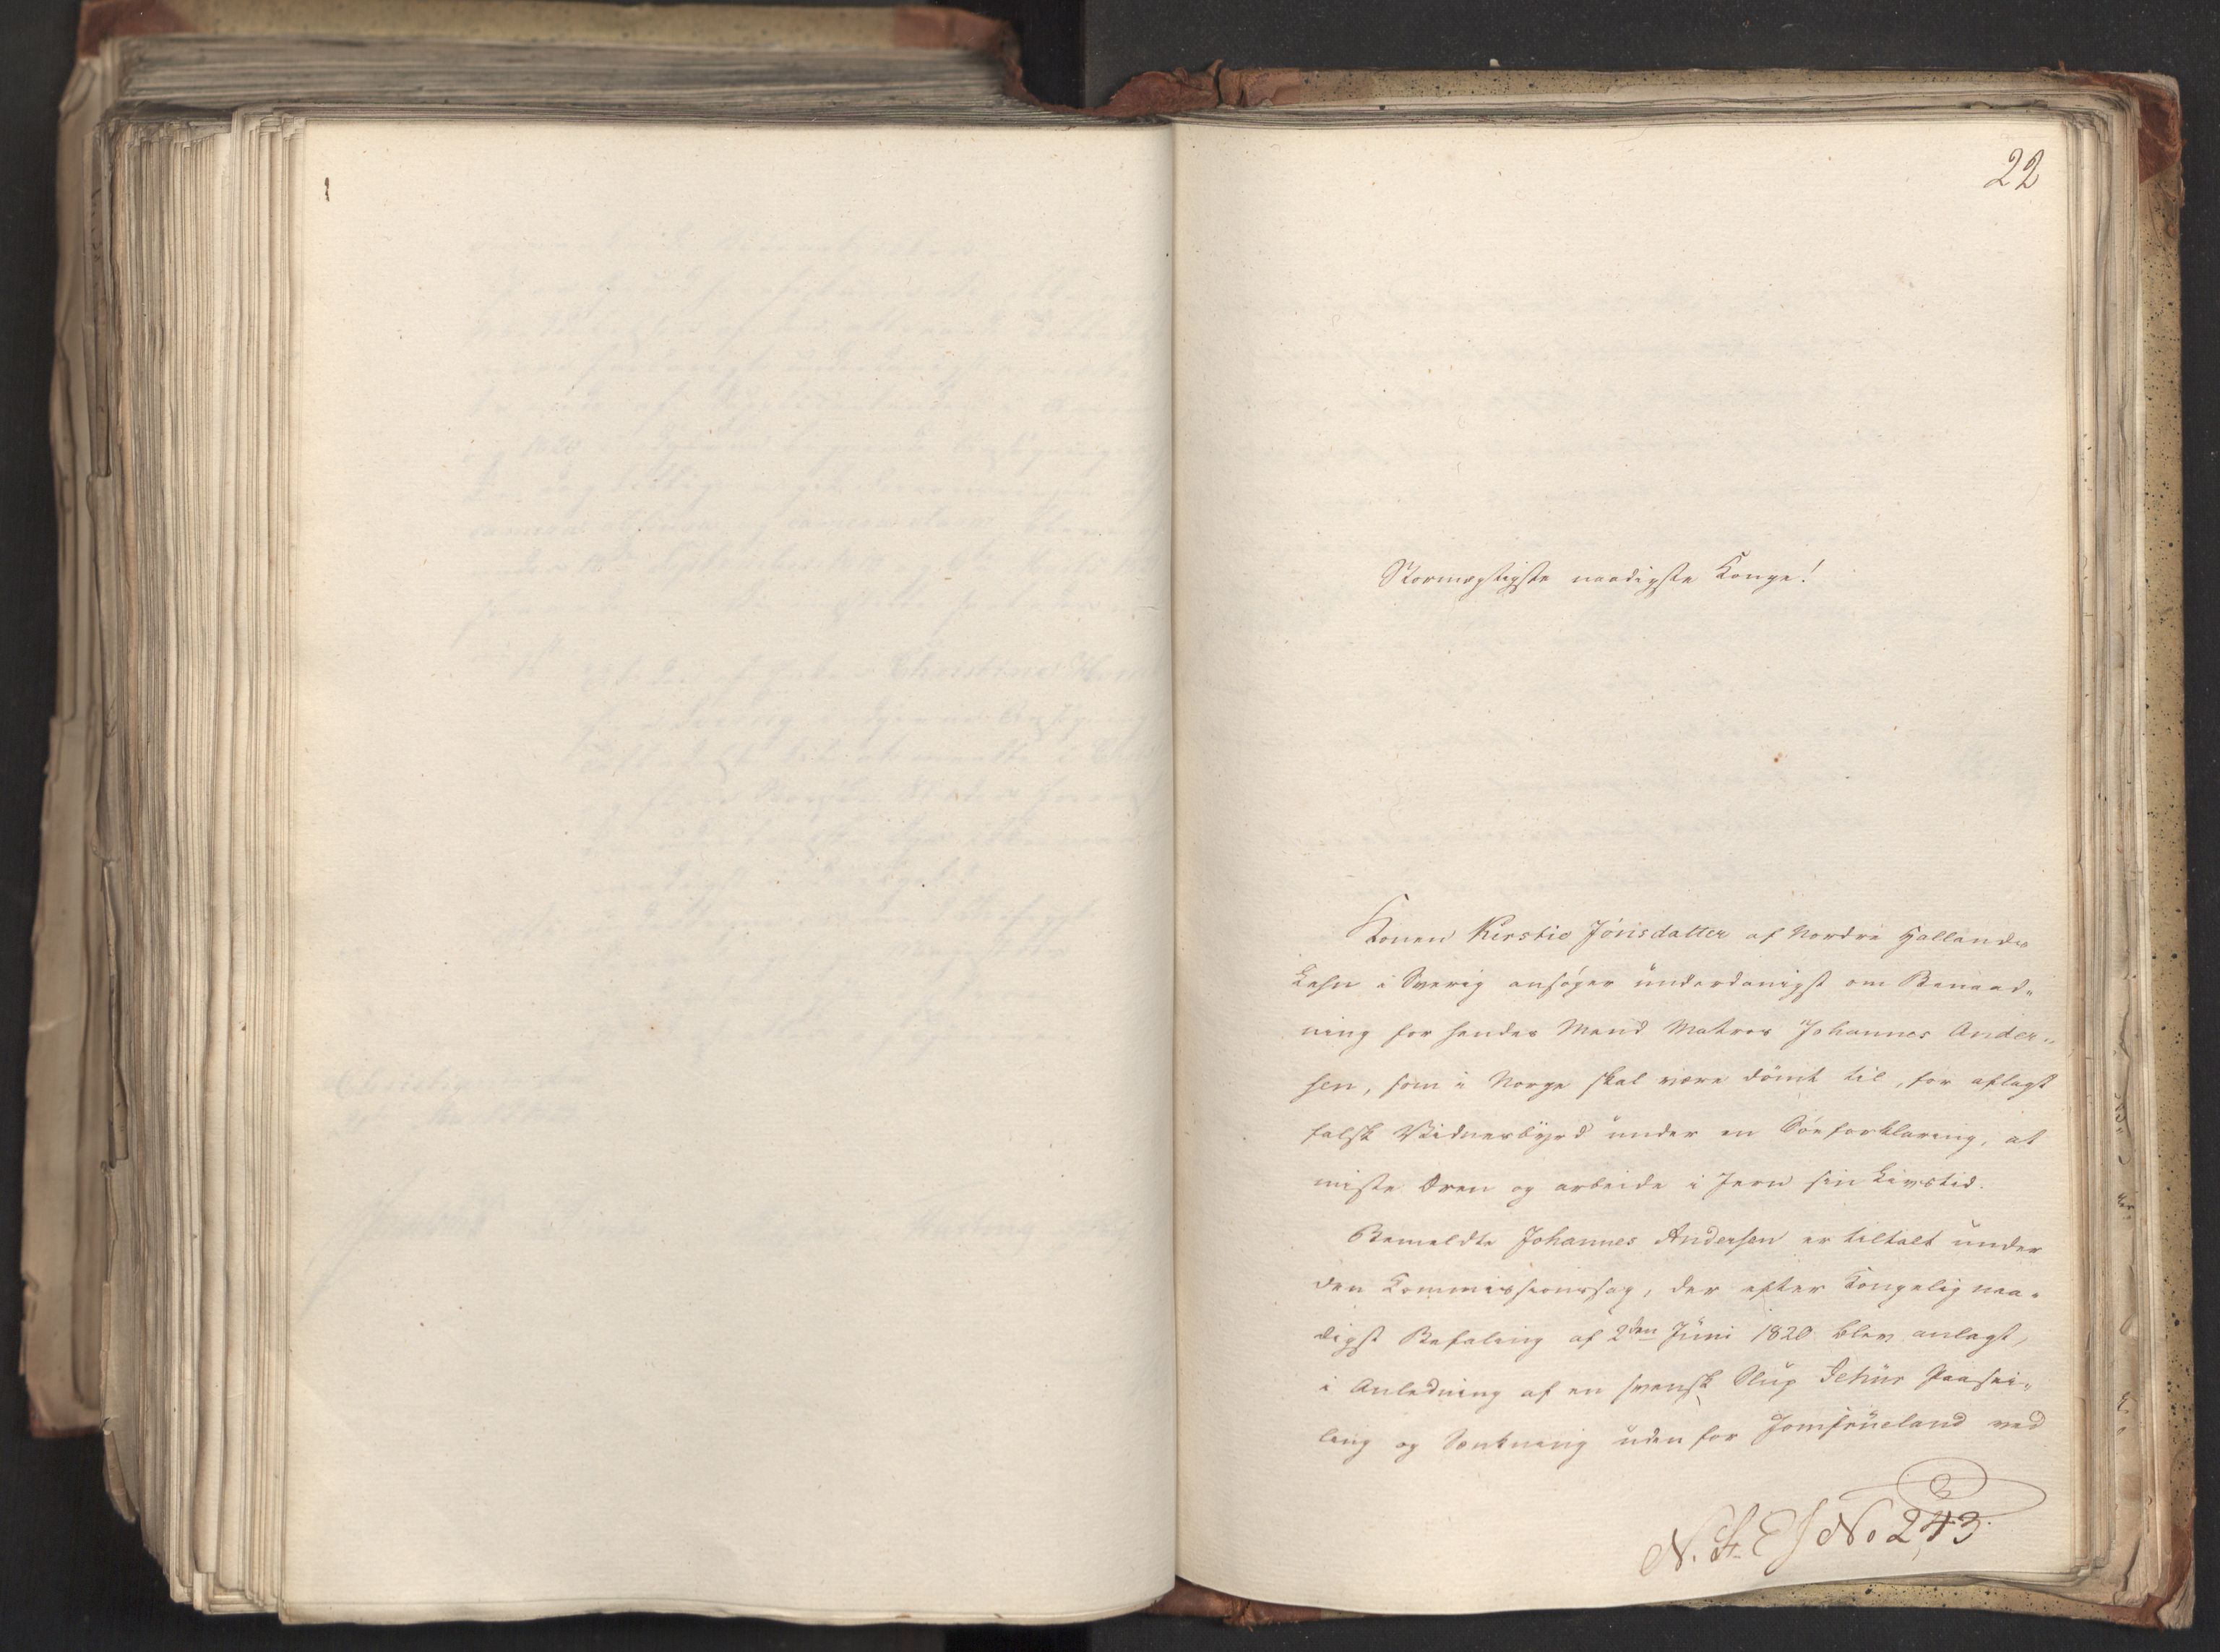 22
Stormægtigste naadigste Konge!
Konen Kirstie Jönisdatter af Nordre Hallands
Lehn i Sverig ansøger underdanigst om Benaad„
ning for hendes Mand Matros Johannes Ander„
sen, som i Norge skal være dömt til, for aflagt
falsk Vidnesbyrd under en Söeforklaring, at
miste Æren og arbeide i Jern sin Livstid.
Bemeldte Johannes Andersen er tiltalt under
den Commissionssag, der efter Kongelig naa„
digst Befaling af 2den Juni 1820 blev anlagt,
i Anledning af en svensk Slup Jehus Paasei„
ling og Sænkning uden for Jomfrueland ved
N. St. E J No 243.